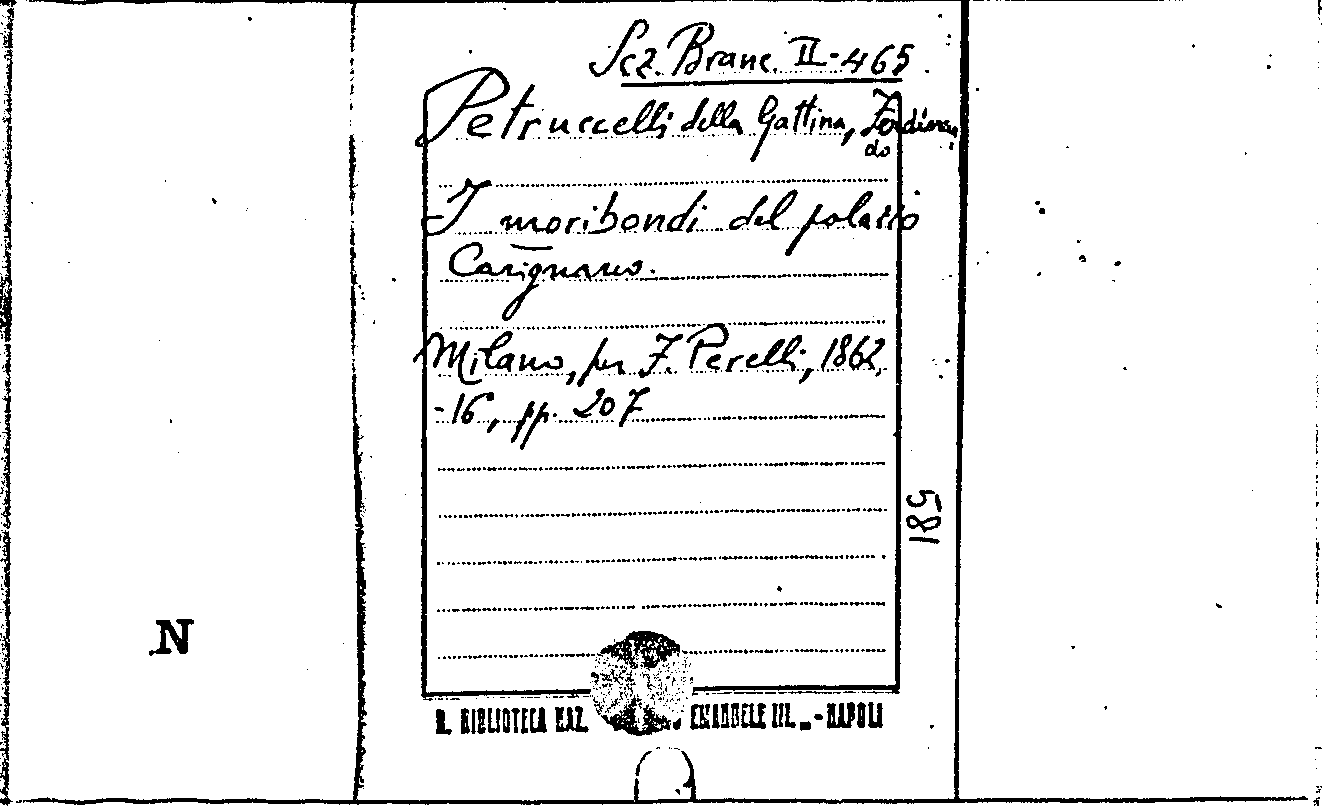 Sez. Branc. II-465
Petruccelli della Gattina, Ferdinan
do
I moribondi del palazzo
Carignano.
Milano, per F. Perelli, 1862,
-16, pp. 207
581
N
R. BIBLIOTECA NAZ. EMANUELE III. „ - NAPOLI